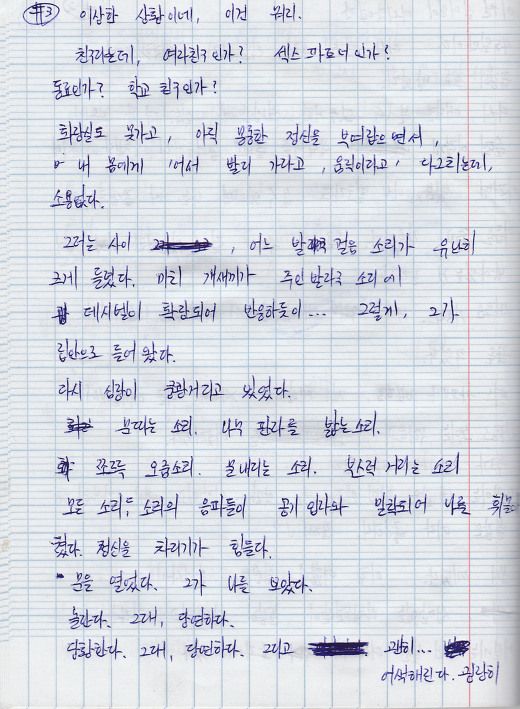 #3 이상한 상황이네, 이건 뭐리.
친구라는데, 여자친구인가? 섹스 파트너인가?
동료인가? 학교 친구인가?
화장실도 못가고, 아직 몽롱한 정신을 부여잡으면서,
내 몸에게 '어서 빨리 가라고, 움직이라고' 다그치는데,
소용없다.
그러는 사이 , 어느 발자국 걸음 소리가 유난히
크게 들렸다. 마치 개새끼가 주인 발자국 소리에
데시벨이 확장되어 반응하듯이... 그렇게, 그가
집안으로 들어 왔다.
다시 심장이 쿵쾅거리고 있었다.
문따는 소리. 나무 판자를 밟는소리.
쪼르륵 오줌소리. 물내리는 소리. 부스럭 거리는 소리
모든 소리, 소리의 음파들이 공기 입자와 밀착되어 나를
쳤다. 정신을 차리기가 힘들다.
문을 열었다. 그가 나를 보았다.
놀란다. 그래, 당연하다.
당황한다. 그래, 당연하다. 그리고 괜히...
어색해진다. 괜한히